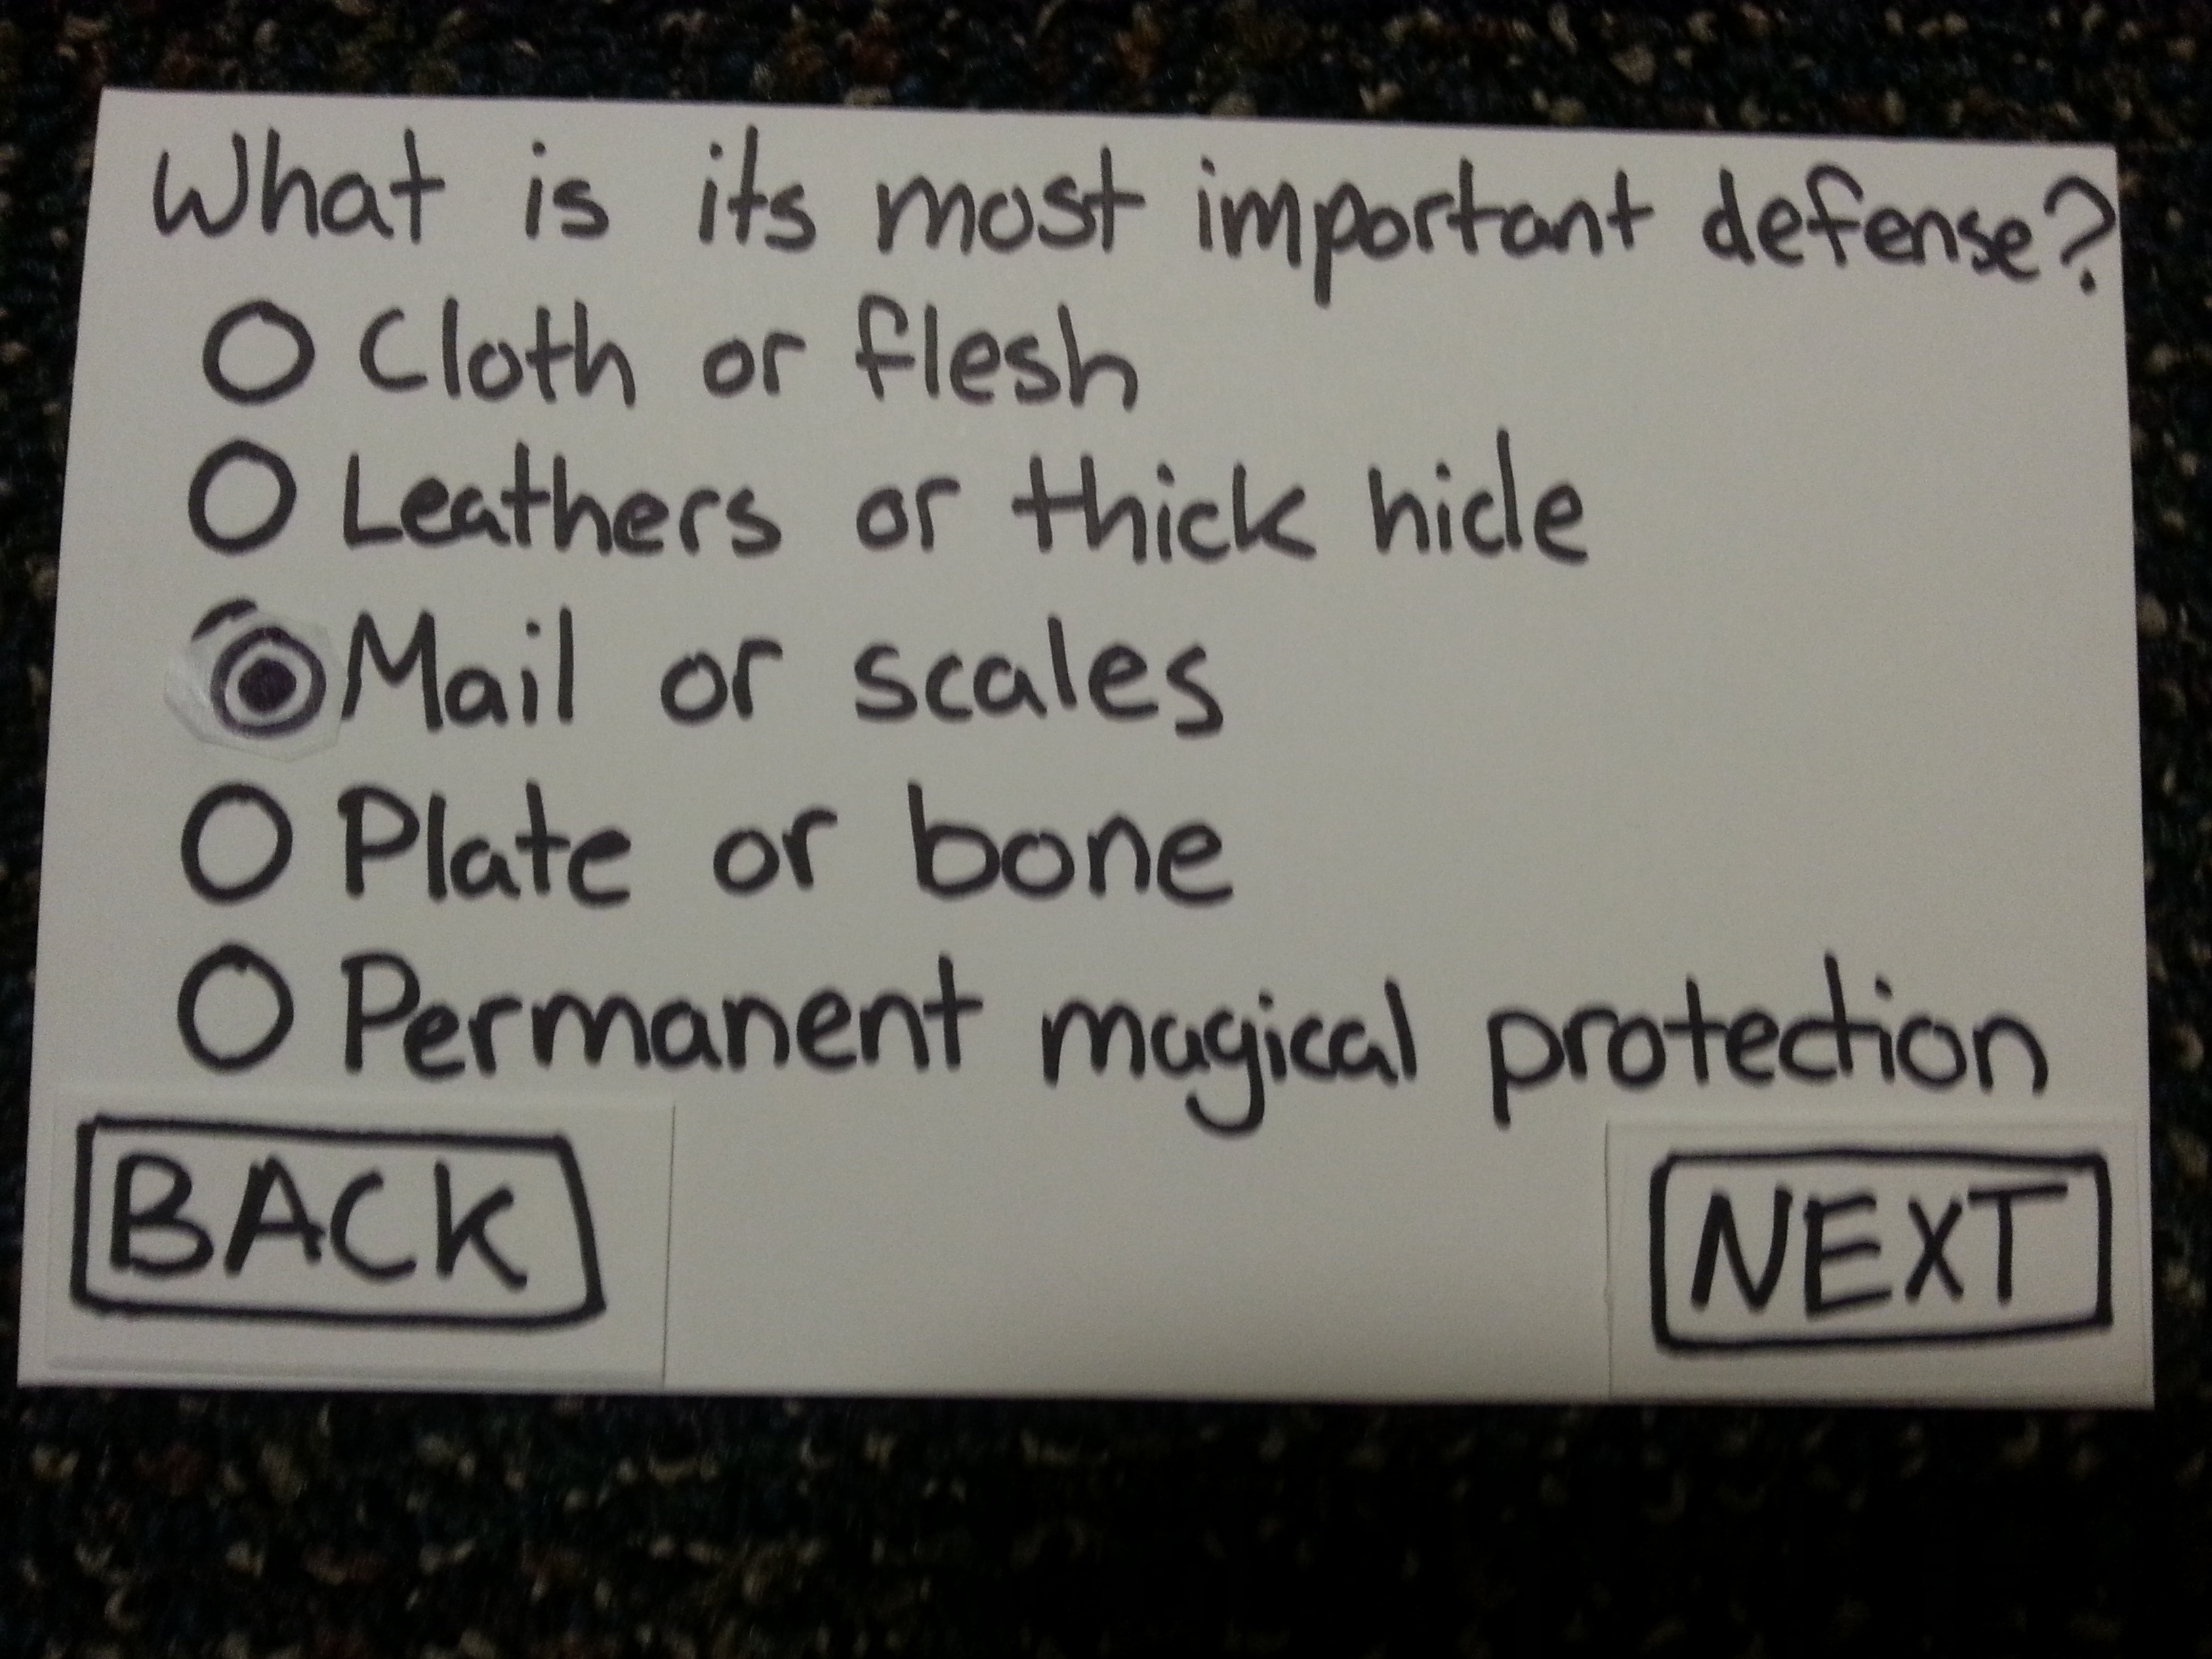 What is its most important defense?
Cloth or flesh
Leathers or thick hide
Mail or scales
Plate or bone
Permanent magical protection
BACK
NEXT